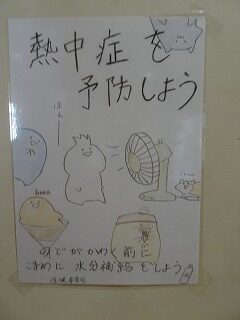 熱中症を
予防しよう
のどがかわく前に
こまめに 水分補給をしよう